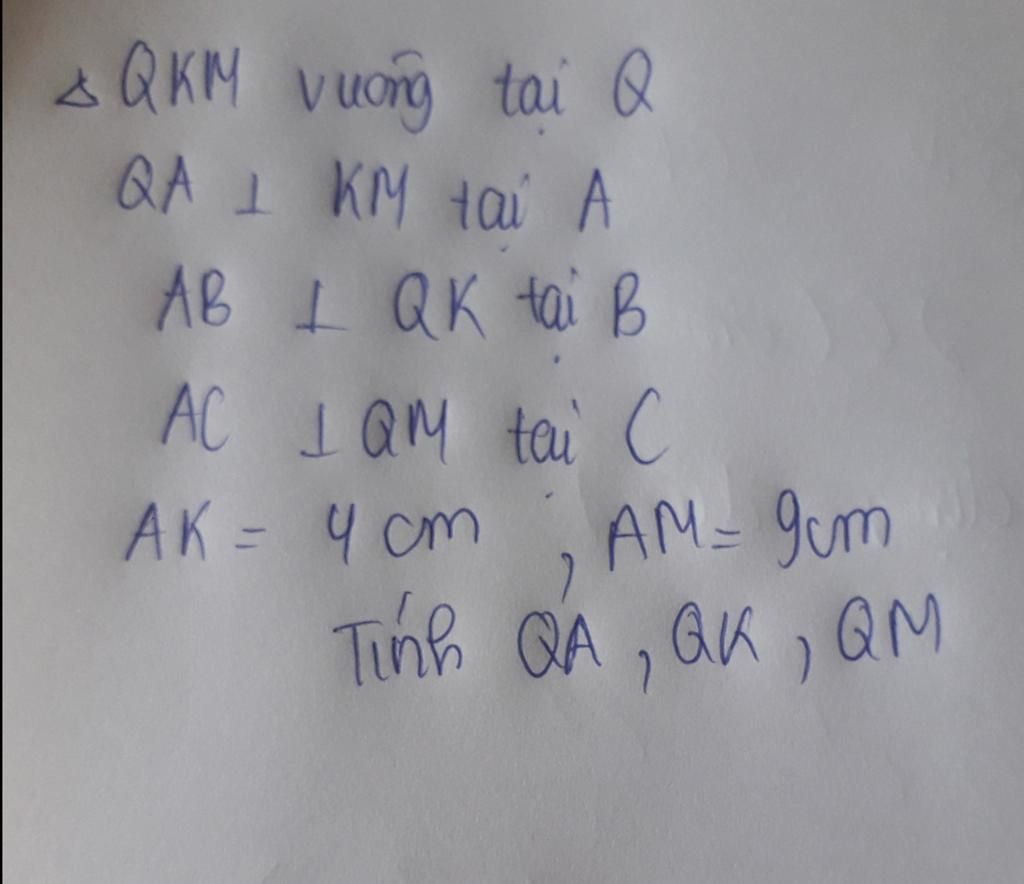 Δ QKM vuông tại Q
QA ⊥ KM tại A
AB ⊥ QK tại B
AC ⊥ QM tại C
AK = 4 cm , AM = 9cm
Tính QA , QK , QM